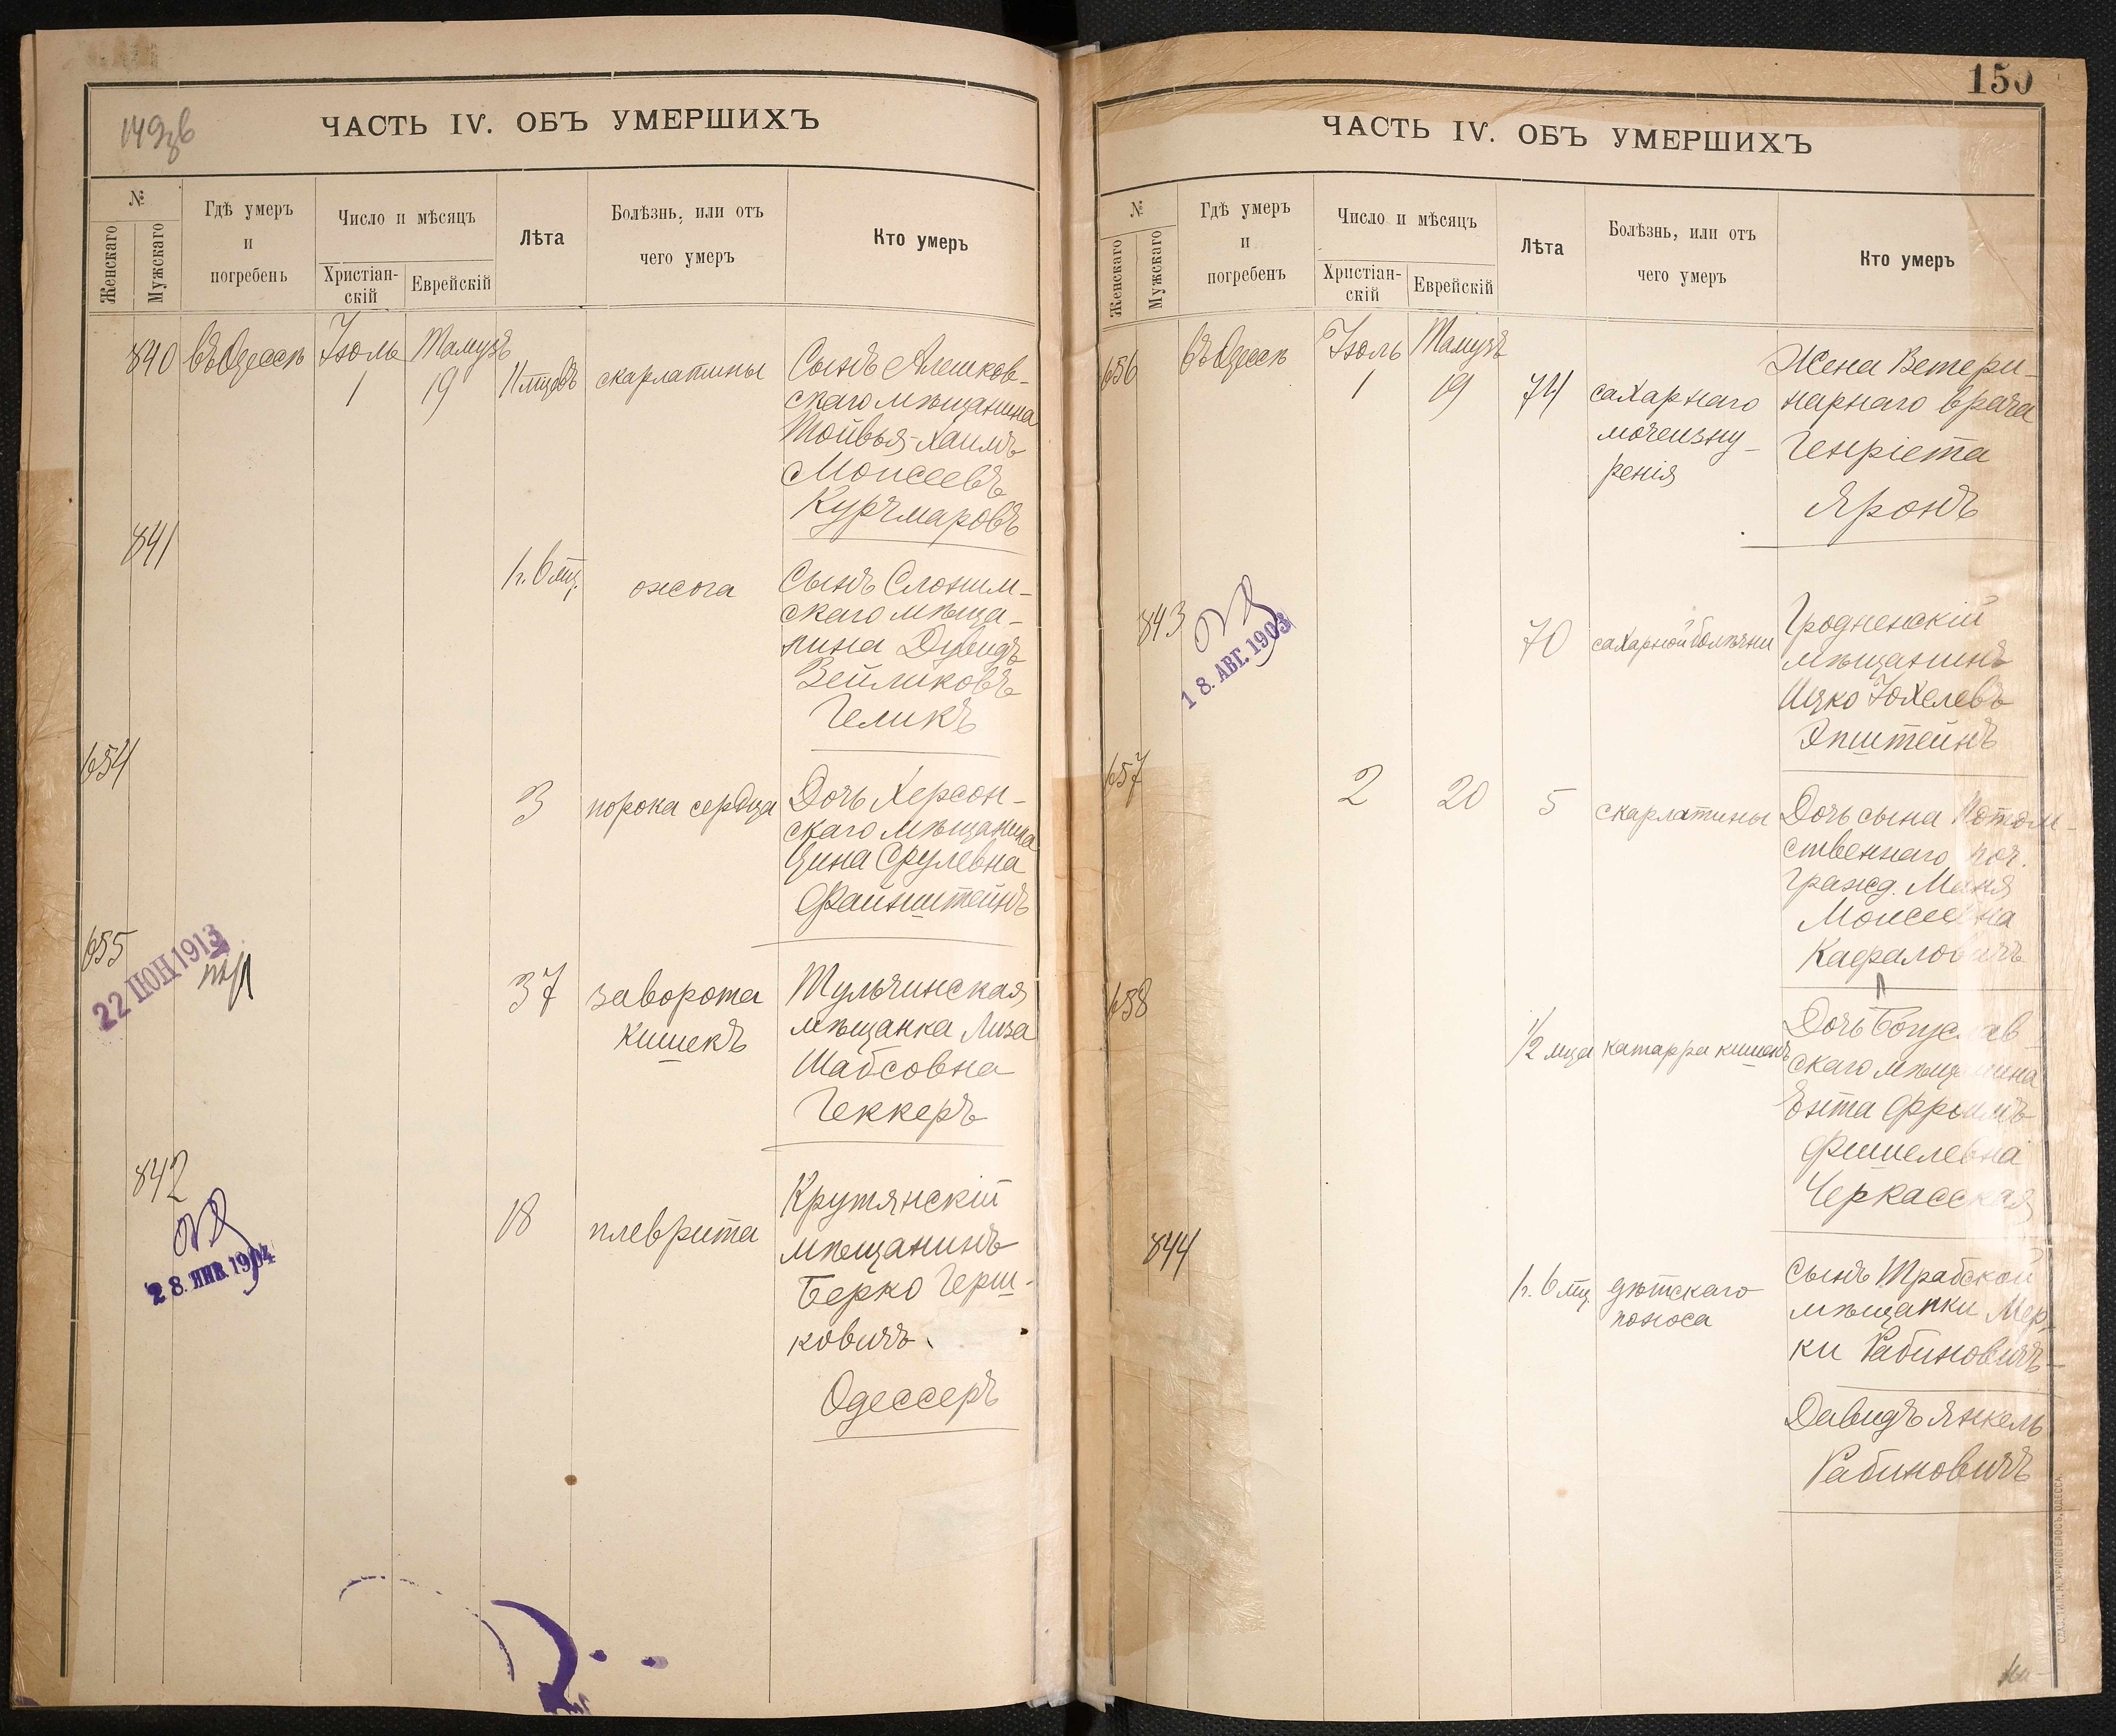 149об
ЧАСТЬ IV. ОБЪ УМЕРШИХЪ
№
Женскаго
Мужскаго
Гдѣ умеръ
и
погребенъ
Число и мѣсяцъ
Христіан-
скій
Еврейскій
Лѣта
Болѣзнь, или отъ
чего умеръ
Кто умеръ
840 въ Одессѣ Іюль Тамузъ
1 19 11 мцовъ скарлатины
Сынъ Алешков-
скаго мѣщанина
Тойвья-Хаимъ
Моисеевъ
Курчмаровъ
841
1 г. 6 мц. ожога
Сынъ Слоним-
скаго мѣща-
нина Дувидъ
Зейликовъ
Геликъ
654
3 порока сердца
Дочь Херсон-
скаго мѣщанина
Цина Срулевна
Файнштейнъ
655
22 ІЮН 1913
37 заворота
кишекъ
Тульчинская
мѣщанка Лиза
Шабсовна
Геккеръ
842
28. ЯНВ. 1904
18 плеврита
Крутянскій
мѣщанинъ
Берко Герш-
ковичъ
Одессеръ
150
ЧАСТЬ IV. ОБЪ УМЕРШИХЪ
№
Женскаго
Мужскаго
Гдѣ умеръ
и
погребенъ
Число и мѣсяцъ
Христіан-
скій
Еврейскій
Лѣта
Болѣзнь, или отъ
чего умеръ
Кто умеръ
656 въ Одессѣ Іюль Тамузъ
1 19 74 сахарнаго
мочеизну-
ренія
Жена Ветери-
нарнаго врача
Генріета
Яронъ
843
18. АВГ. 1903
70 сахарной болѣзни
Гродненскій
мѣщанинъ
Ицко Іохелевъ
Эпштейнъ
657
2 20 5 скарлатины
Дочь сына Потом-
ственнаго поч.
гражд. Маня
Моисеевна
Кафаловичъ
658
1/2 мца катарра кишекъ
Дочь Богуслав-
скаго мѣщанина
Ента Фроимъ-
Фишелевна
Черкасская
844
1 г. 6 мц. дѣтскаго
поноса
Сынъ Трабской
мѣщанки Мер-
ки Рабиновичъ-
Давидъ Янкель
Рабиновичъ
СЛАВ. ТИП. Н. ХРИСОГЕЛОСЪ, ОДЕССА.